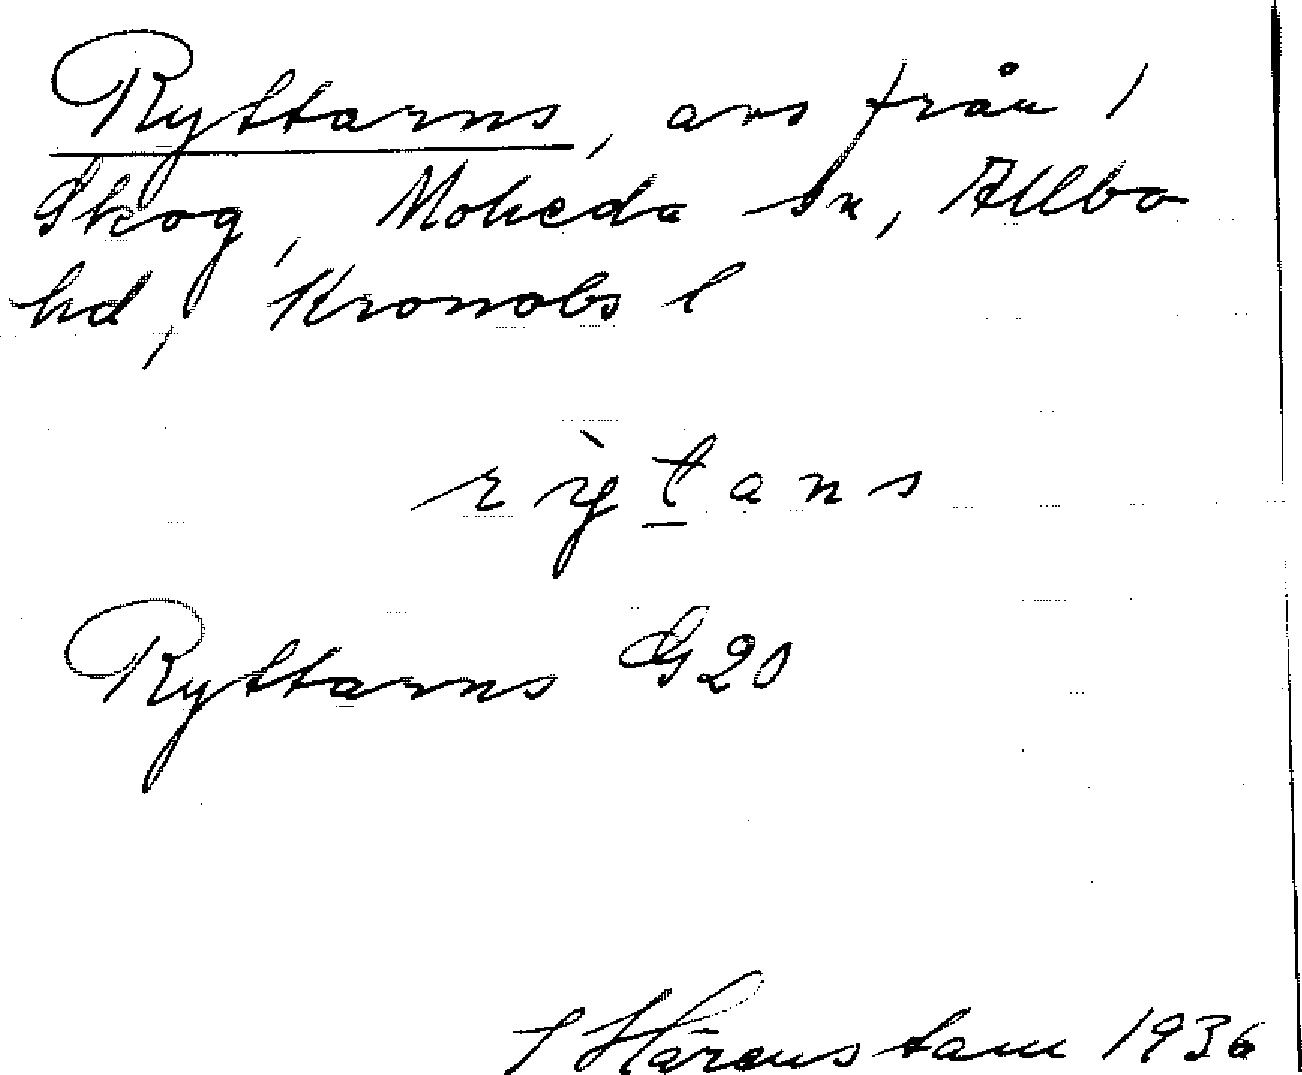 Ryttarns, avs från 1
Skog, Moheda sn, Allbo
hd, Kronobs l
rỳtans
Ryttarns G20
S Härenstam 1936